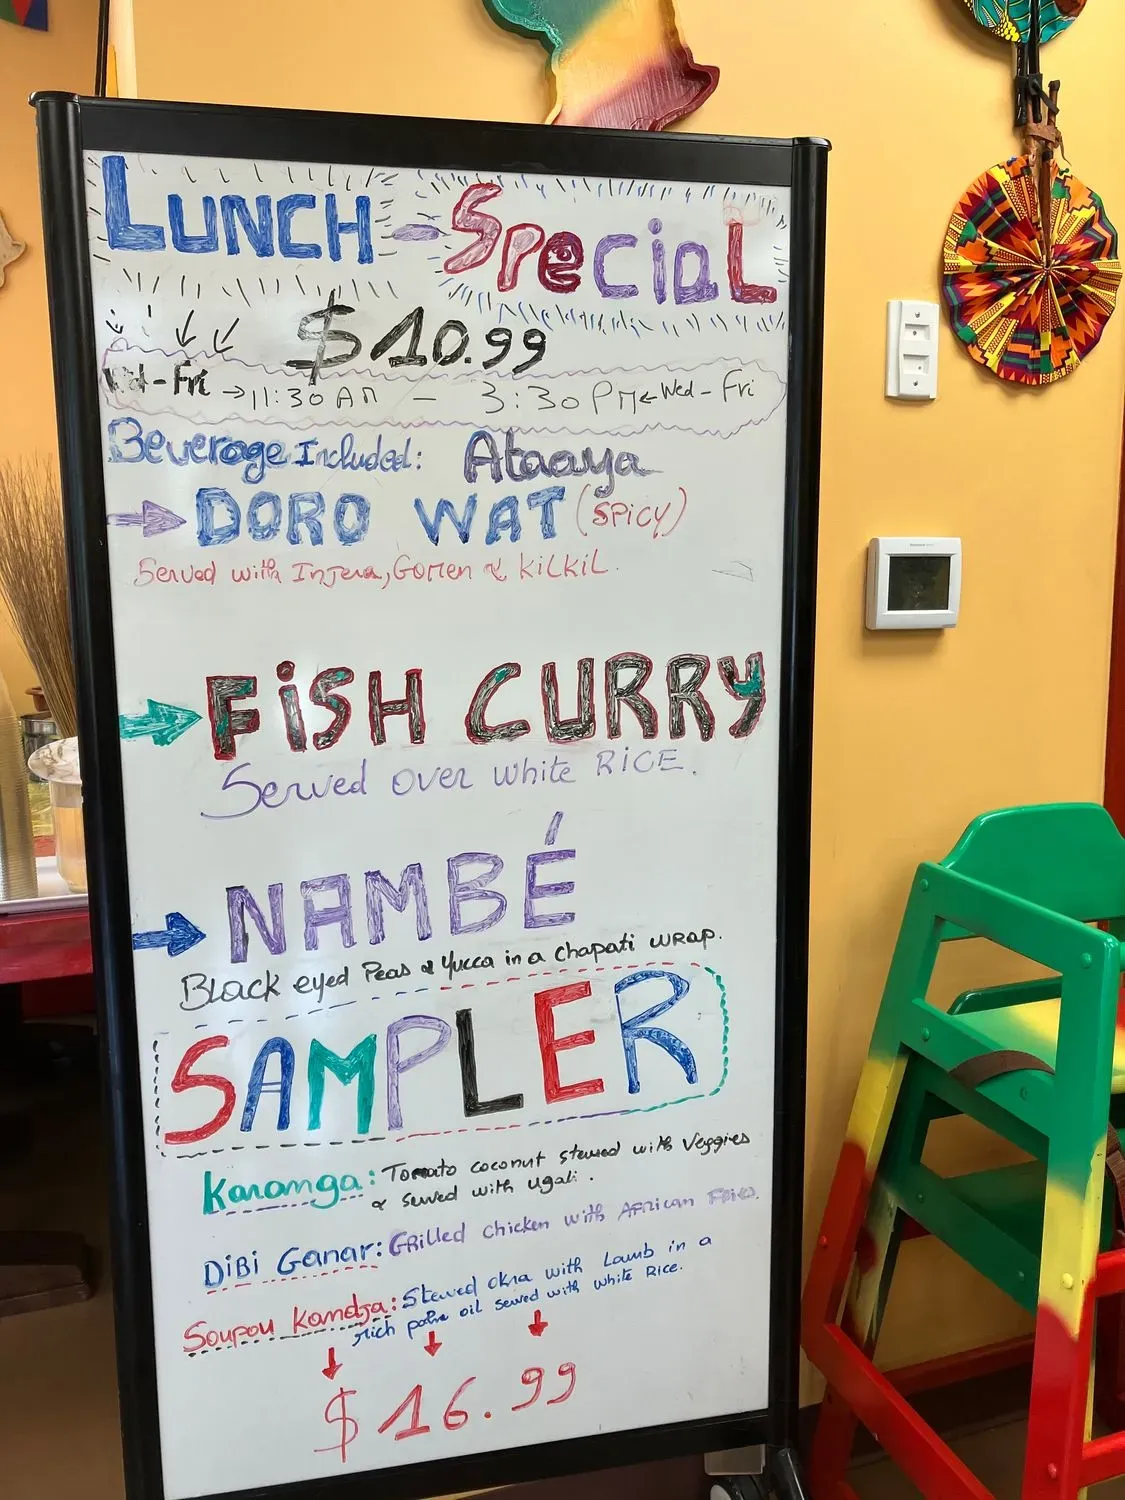 LUNCH - SPeciaL
$10.99
Wed-Fri → 11:30 AM - 3:30 PM ← Wed-Fri
Beverage Included: Ataaya
→ DORO WAT (SPICY)
Served with Injera, Gomen & KiLKiL.
→ FiSH CURRY
Served over white RICE.
→ NAMBÉ
Black eyed Peas & Yucca in a chapati wrap.
SAMPLER
Karanga: Tomato coconut stewed with Veggies
& served with ugali.
DiBi Ganar: GRilled chicken with AFRICAN FRies.
Soupou Kandja: Stewed okra with Lamb in a
rich palm oil served with white Rice.
$16.99